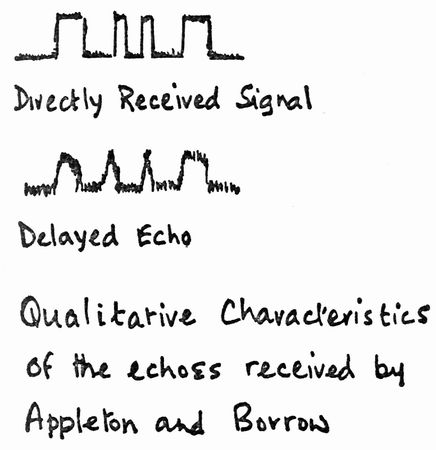 Directly Received Signal
Delayed Echo
Qualitative Characteristics
of the echoes received by
Appleton and Borrow